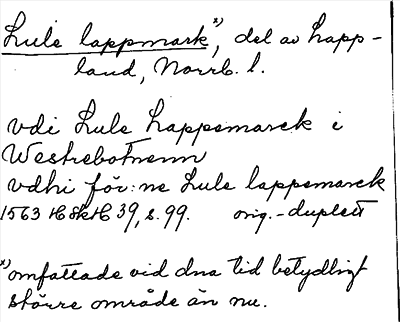 Lule lappmark x), del av Lapp-
land, Norrb. l.
vdi Lule Lappemarck i
Westrebotnenn
vdhi för:ne Lule lappemarck
1563 HSkH 39, s. 99. orig.-duplett
x) omfattade vid dna tid betydligt
större område än nu.